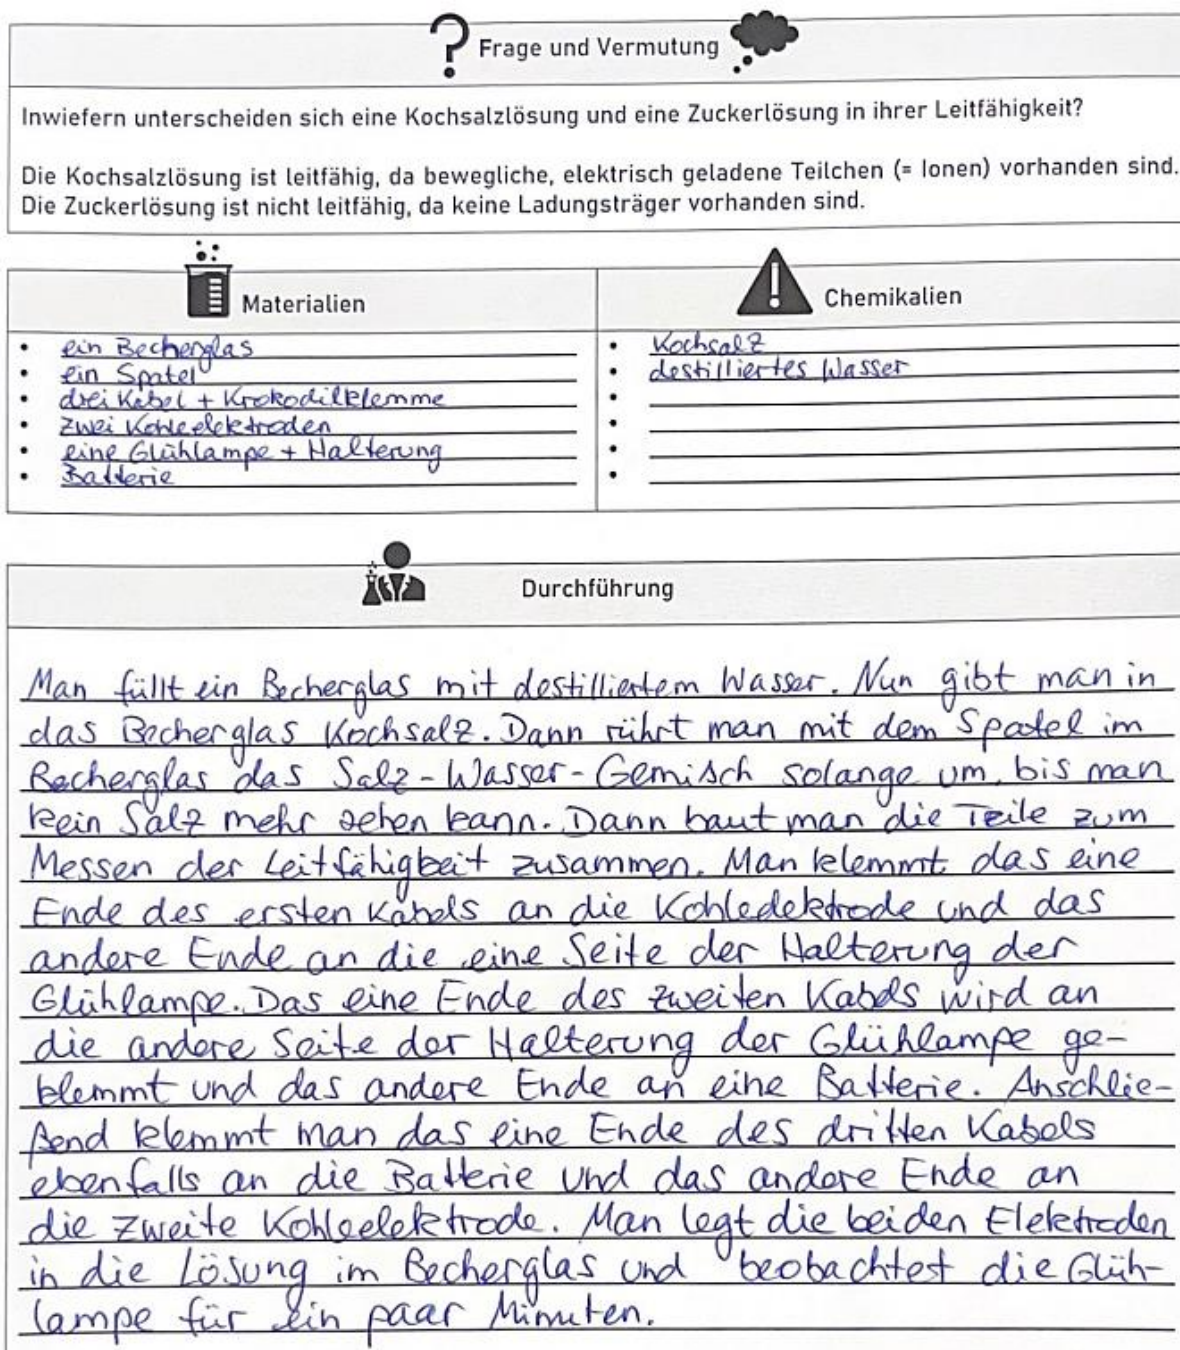 Frage und Vermutung
Inwiefern unterscheiden sich eine Kochsalzlösung und eine Zuckerlösung in ihrer Leitfähigkeit?
Die Kochsalzlösung ist leitfähig, da bewegliche, elektrisch geladene Teilchen (= Ionen) vorhanden sind.
Die Zuckerlösung ist nicht leitfähig, da keine Ladungsträger vorhanden sind.
Materialien
• ein Becherglas
• ein Spatel
• drei Kabel + Krokodilklemme
• zwei Kohleelektroden
• eine Glühlampe + Halterung
• Batterie
Chemikalien
• Kochsalz
• destilliertes Wasser
Durchführung
Man füllt ein Becherglas mit destilliertem Wasser. Nun gibt man in
das Becherglas Kochsalz. Dann rührt man mit dem Spatel im
Becherglas das Salz-Wasser-Gemisch solange um, bis man
kein Salz mehr sehen kann. Dann baut man die Teile zum
Messen der Leitfähigkeit zusammen. Man klemmt das eine
Ende des ersten Kabels an die Kohleelektrode und das
andere Ende an die eine Seite der Halterung der
Glühlampe. Das eine Ende des zweiten Kabels wird an
die andere Seite der Halterung der Glühlampe ge-
klemmt und das andere Ende an eine Batterie. Anschlie-
ßend klemmt man das eine Ende des dritten Kabels
ebenfalls an die Batterie und das andere Ende an
die zweite Kohleelektrode. Man legt die beiden Elektroden
in die Lösung im Becherglas und beobachtet die Glüh-
lampe für ein paar Minuten.